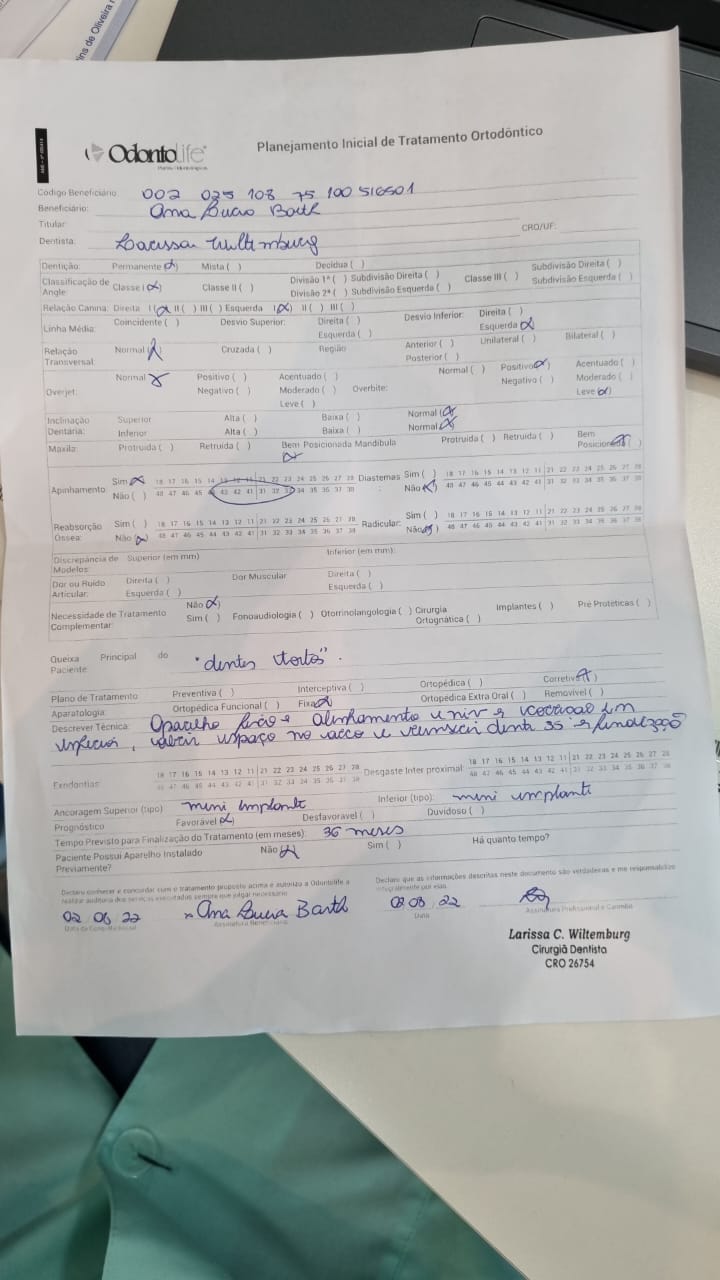 ins de Oliveira
Odontolife
Planos Odontológicos
Planejamento Inicial de Tratamento Ortodôntico
Código Beneficiário: 002 025 108 75 100 516501
Beneficiário: Ana Lucia Barth
Titular:
Dentista: Larissa Wiltemburg CRO/UF:
Dentição: Permanente (x) Mista ( ) Decídua ( )
Classificação de Angle: Classe I (x) Classe II ( ) Divisão 1ª ( ) Subdivisão Direita ( ) Classe III ( ) Subdivisão Direita ( )
Divisão 2ª ( ) Subdivisão Esquerda ( ) Subdivisão Esquerda ( )
Relação Canina: Direita I (x) II ( ) III ( ) Esquerda I (x) II ( ) III ( )
Linha Média: Coincidente ( ) Desvio Superior: Direita ( ) Desvio Inferior: Direita ( )
Esquerda ( ) Esquerda (x)
Relação Transversal: Normal (x) Cruzada ( ) Região Anterior ( ) Unilateral ( ) Bilateral ( )
Posterior ( )
Overjet: Normal (x) Positivo ( ) Acentuado ( ) Overbite: Normal ( ) Positivo (x) Acentuado ( )
Negativo ( ) Moderado ( ) Negativo ( ) Moderado ( )
Leve ( ) Leve (x)
Inclinação Dentária: Superior Alta ( ) Baixa ( ) Normal (x)
Inferior Alta ( ) Baixa ( ) Normal (x)
Maxila: Protruída ( ) Retruída ( ) Bem Posicionada (x) Mandíbula Protruída ( ) Retruída ( ) Bem Posicionada (x)
Apinhamento: Sim (x) 18 17 16 15 14 13 12 11 21 22 23 24 25 26 27 28 Diastemas Sim ( ) 18 17 16 15 14 13 12 11 21 22 23 24 25 26 27 28
Não ( ) 48 47 46 45 44 43 42 41 31 32 33 34 35 36 37 38 Não (x) 48 47 46 45 44 43 42 41 31 32 33 34 35 36 37 38
Reabsorção Óssea: Sim ( ) 18 17 16 15 14 13 12 11 21 22 23 24 25 26 27 28 Radicular: Sim ( ) 18 17 16 15 14 13 12 11 21 22 23 24 25 26 27 28
Não (x) 48 47 46 45 44 43 42 41 31 32 33 34 35 36 37 38 Não (x) 48 47 46 45 44 43 42 41 31 32 33 34 35 36 37 38
Discrepância de Modelos: Superior (em mm) Inferior (em mm):
Dor ou Ruído Articular: Direita ( ) Dor Muscular Direita ( )
Esquerda ( ) Esquerda ( )
Necessidade de Tratamento Complementar: Não (x)
Sim ( ) Fonoaudiologia ( ) Otorrinolangologia ( ) Cirurgia Ortognática ( ) Implantes ( ) Pré Protéticas ( )
Queixa Principal do Paciente: "dentes tortos".
Plano de Tratamento Preventiva ( ) Interceptiva ( ) Ortopédica ( ) Corretiva (x)
Aparatologia: Ortopédica Funcional ( ) Fixa (x) Ortopédica Extra Oral ( ) Removível ( )
Descrever Técnica: Aparelho fixo e alinhamento e
inferior, espaço no e dente 35 e finalização
Exodontias: 18 17 16 15 14 13 12 11 21 22 23 24 25 26 27 28 Desgaste Inter proximal: 18 17 16 15 14 13 12 11 21 22 23 24 25 26 27 28
48 47 46 45 44 43 42 41 31 32 33 34 35 36 37 38 48 47 46 45 44 43 42 41 31 32 33 34 35 36 37 38
Ancoragem Superior (tipo) mini implante Inferior (tipo): mini implante
Prognóstico Favorável (x) Desfavorável ( ) Duvidoso ( )
Tempo Previsto para Finalização do Tratamento (em meses): 36 meses
Paciente Possui Aparelho Instalado Previamente? Não (x) Sim ( ) Há quanto tempo?
Declaro conhecer e concordar com o tratamento proposto acima e autorizo a Odontolife a realizar auditoria dos serviços executados sempre que julgar necessário
Declaro que as informações descritas neste documento são verdadeiras e me responsabilizo integralmente por elas
02 08 22 x Ana Lucia Barth 02 08 22
Assinatura Beneficiário Data Assinatura Profissional e Carimbo
Larissa C. Wiltemburg
Cirurgiã Dentista
CRO 26754